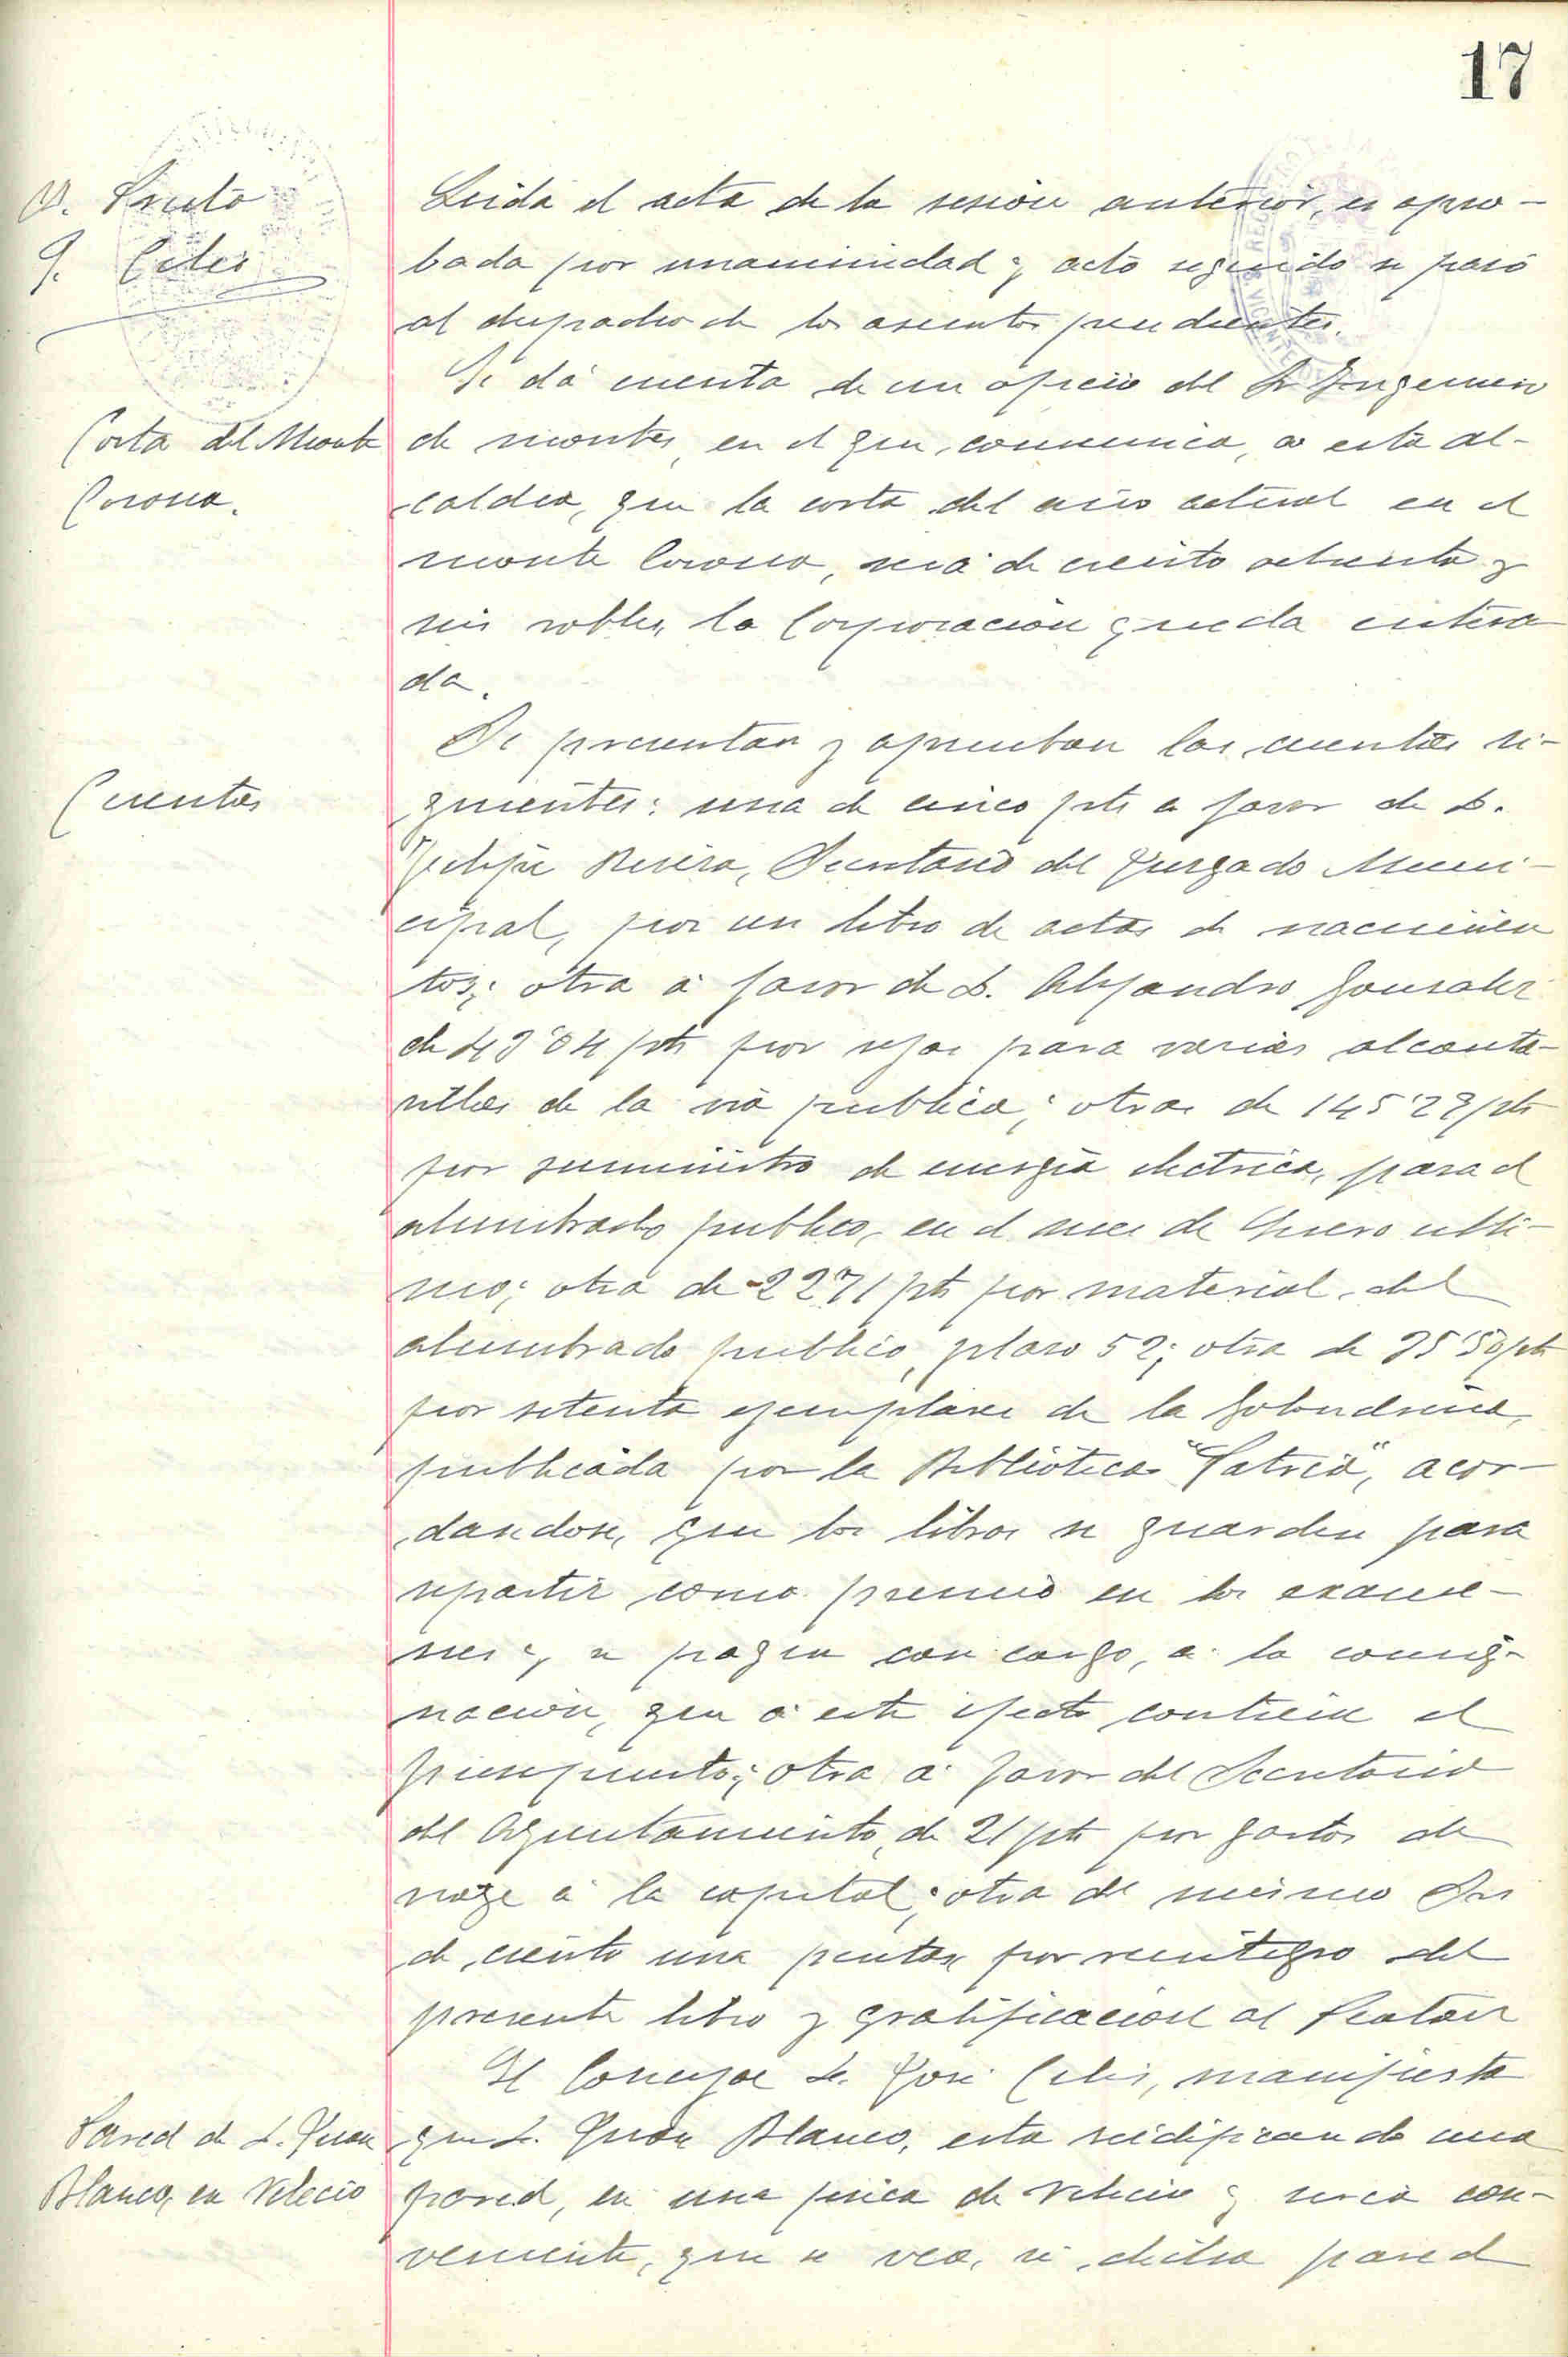 17
V. Pruto
J. Celis
Leida el acta de la sesión anterior, es apro-
bada por unanimidad y acto seguido se pasó
al despacho de los asuntos pendientes.
Se dá cuenta de un oficio del Sr Yngeniero
Corta del Monte
de montes, en el que, comunica, a esta al-
Corona.
caldia, que la corta del año actual en el
monte Corona, será de ciento setenta y
seis robles, la Corporación queda entera
da.
Se presentan y aprueban las cuentas si-
Cuentas
guientes: una de cinco pts a favor de D.
Felipe Rivera, Secretario del Juzgado Muni-
cipal, por un libro de actas de nacimien
tos; otra á favor de D. Alejandro Gonzalez
de 49'04 pts por rejas para varias alcanta-
rillas de la via publica; otra de 145'29 pts
por suministro de energia electrica, para el
alumbrado publico, en el mes de Enero ulti-
mo; otra de 2271 pts por material, del
alumbrado publico, plazo 52; otra de 95'50 pts
por setenta ejemplares de la Golondrina,
publicada por la Biblioteca "Patria", acor-
dandose, que los libros se guarden para
repartir como premio en los exame-
nes y, se paguen con cargo, a la consig-
nación, que á este efecto contiene el
presupuesto; otra á favor del Secretario
del Ayuntamiento, de 21 pts por gastos de
viage á la capital; otra del mismo Sr
de ciento una pesetas por reintegro del
presente libro y gratificacion al
El Concejal D. José Celis, manifiesta
Pared de D. Juan
que D. Juan Blanco, esta reidificando una
Blanco, en Velecio
pared, en una finca de Velecio y seria con-
veniente, que se vea, si dicha pared